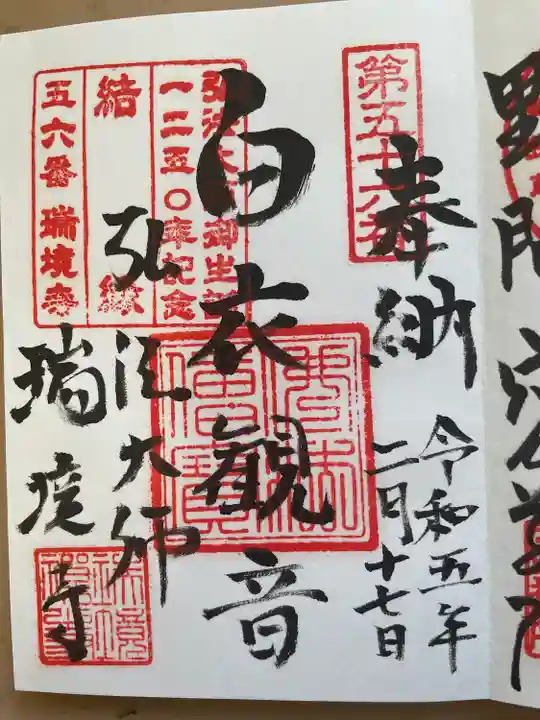 奉納
令和五年
二月十七日
第五十六番
白衣觀音
弘法大師
瑞境寺
弘法大師御生誕
一二五〇年記念
結縁
五六番 瑞境寺